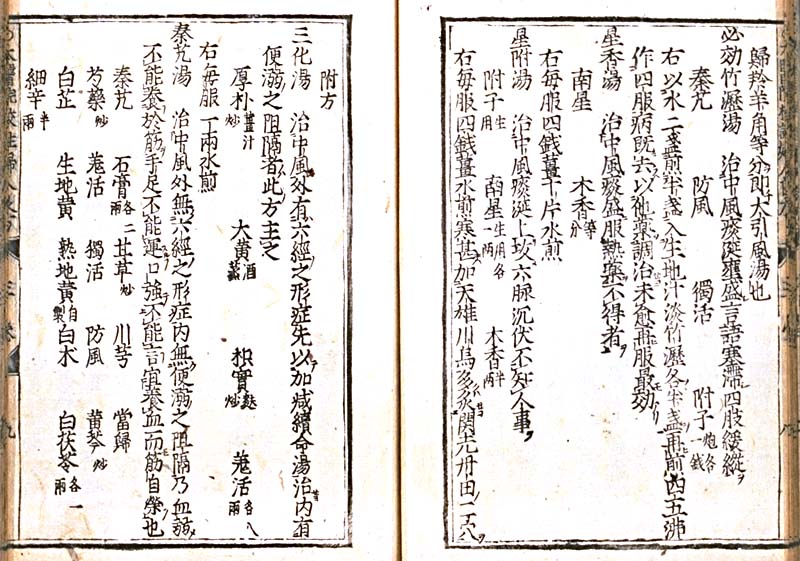 歸羚羊角等分即大引風湯也
必効竹瀝湯 治中風痰涎壅盛言語蹇滯四肢緩縱
秦艽 防風 獨活 附子炮各一錢
右以水二盞煎半盞入生地汁淡竹瀝各半盞再煎四五沸
作四服病既去以他藥調治未愈再服最効
星香湯 治中風痰盛服熱藥不得者
南星 木香等分
右每服四錢薑十片水煎
星附湯 治中風痰涎上攻六脉沉伏不知人事
附子生用 南星生用各一兩 木香半兩
右每服四錢薑水煎寒甚加天雄川烏多灸關元丹田一二八
附方
三化湯 治中風外有六經之形症先以加减續命湯治内有
便溺之阻隔者此方主之
厚朴薑汁炒 大黄酒蒸 枳實麩炒 羌活各八兩
右每服一兩水煎
秦艽湯 治中風外無六經之形症内無便溺之阻隔乃血弱
不能養於筋手足不能運口強不能言宜養血而筋自榮也
秦艽 石膏各二兩 甘草炒 川芎 當歸
芍藥炒 羌活 獨活 防風 黄芩炒
白芷 生地黄 熟地黄自製 白朮 白茯苓各一兩
細辛半兩